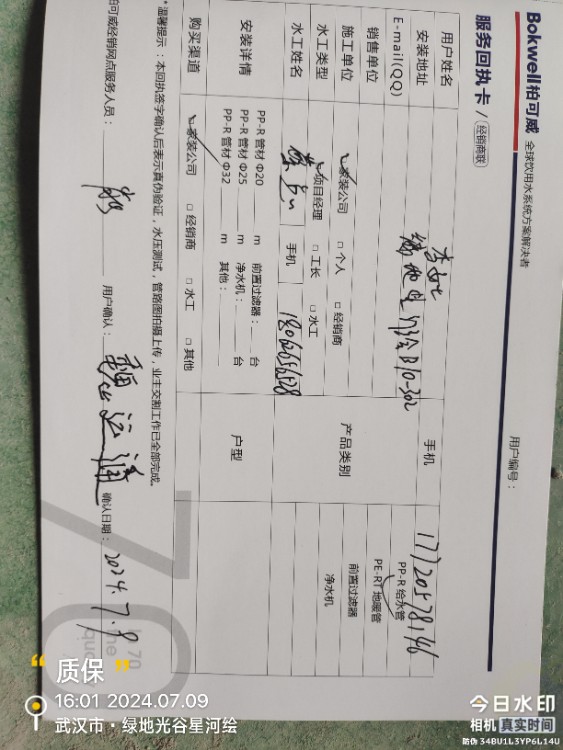 Bokwell柏可威 全球饮用水系统方案解决者
服务回执卡/经销商联
用户编号：
用户姓名
手机 17720578146
安装地址 B10-302
E-mail(QQ)
销售单位
施工单位 家装公司 □ 个人 □ 经销商
水工类型 项目经理 □ 工长 □ 水工
水工姓名 手机
产品类别
PP-R 给水管
PE-RT 地暖管
前置过滤器
净水机
安装详情
PP-R 管材 Φ20 m 前置过滤器： 台
PP-R 管材 Φ25 m 净水机： 台
PP-R 管材 Φ32 m 其他：
户型
购买渠道 家装公司 □ 经销商 □ 水工 □ 其他
*温馨提示：本回执签字确认后表示真伪验证，水压测试，管路图拍摄上传，业主交割工作已全部完成。
柏可威经销网点服务人员： 用户确认： 确认日期：2024.7.9
“质保”
16:01 2024.07.09
武汉市·绿地光谷星河绘
今日水印
相机 真实时间
防伪 34BU1L3YP6L14U